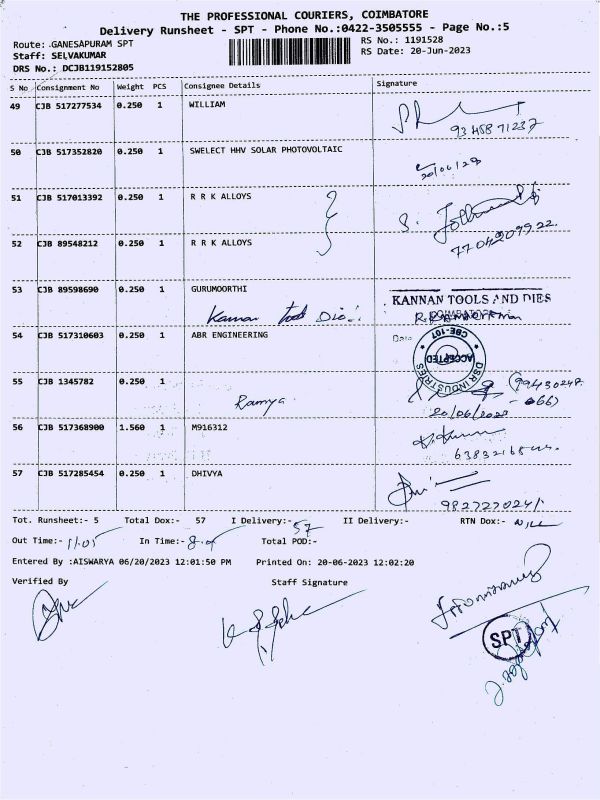 THE PROFESSIONAL COURIERS, COIMBATORE
Delivery Runsheet - SPT - Phone No.:0422-3505555 - Page No.:5
Route: GANESAPURAM SPT RS No.: 1191528
Staff: SELVAKUMAR RS Date: 20-Jun-2023
DRS No.: DCJB119152805
S No Consignment No Weight PCS Consignee Details Signature
49 CJB 517277534 0.250 1 WILLIAM
50 CJB 517352820 0.250 1 SWELECT HHV SOLAR PHOTOVOLTAIC
20/06/23
51 CJB 517013392 0.250 1 R R K ALLOYS
52 CJB 89548212 0.250 1 R R K ALLOYS
53 CJB 89598690 0.250 1 GURUMOORTHI
KANNAN TOOLS AND DIES
Kannan Tools Dio
54 CJB 517310603 0.250 1 ABR ENGINEERING
Date
CBE-107
ACCEPTED
DSR INDUSTRIES
55 CJB 1345782 0.250 1
Ramya
20/06/2023
56 CJB 517368900 1.560 1 M916312
57 CJB 517285454 0.250 1 DHIVYA
Tot. Runsheet:- 5 Total Dox:- 57 I Delivery:- 57 II Delivery:- RTN Dox:- NILL
Out Time:- 11.05 In Time:- Total POD:-
Entered By :AISWARYA 06/20/2023 12:01:50 PM Printed On: 20-06-2023 12:02:20
Verified By Staff Signature
SPT